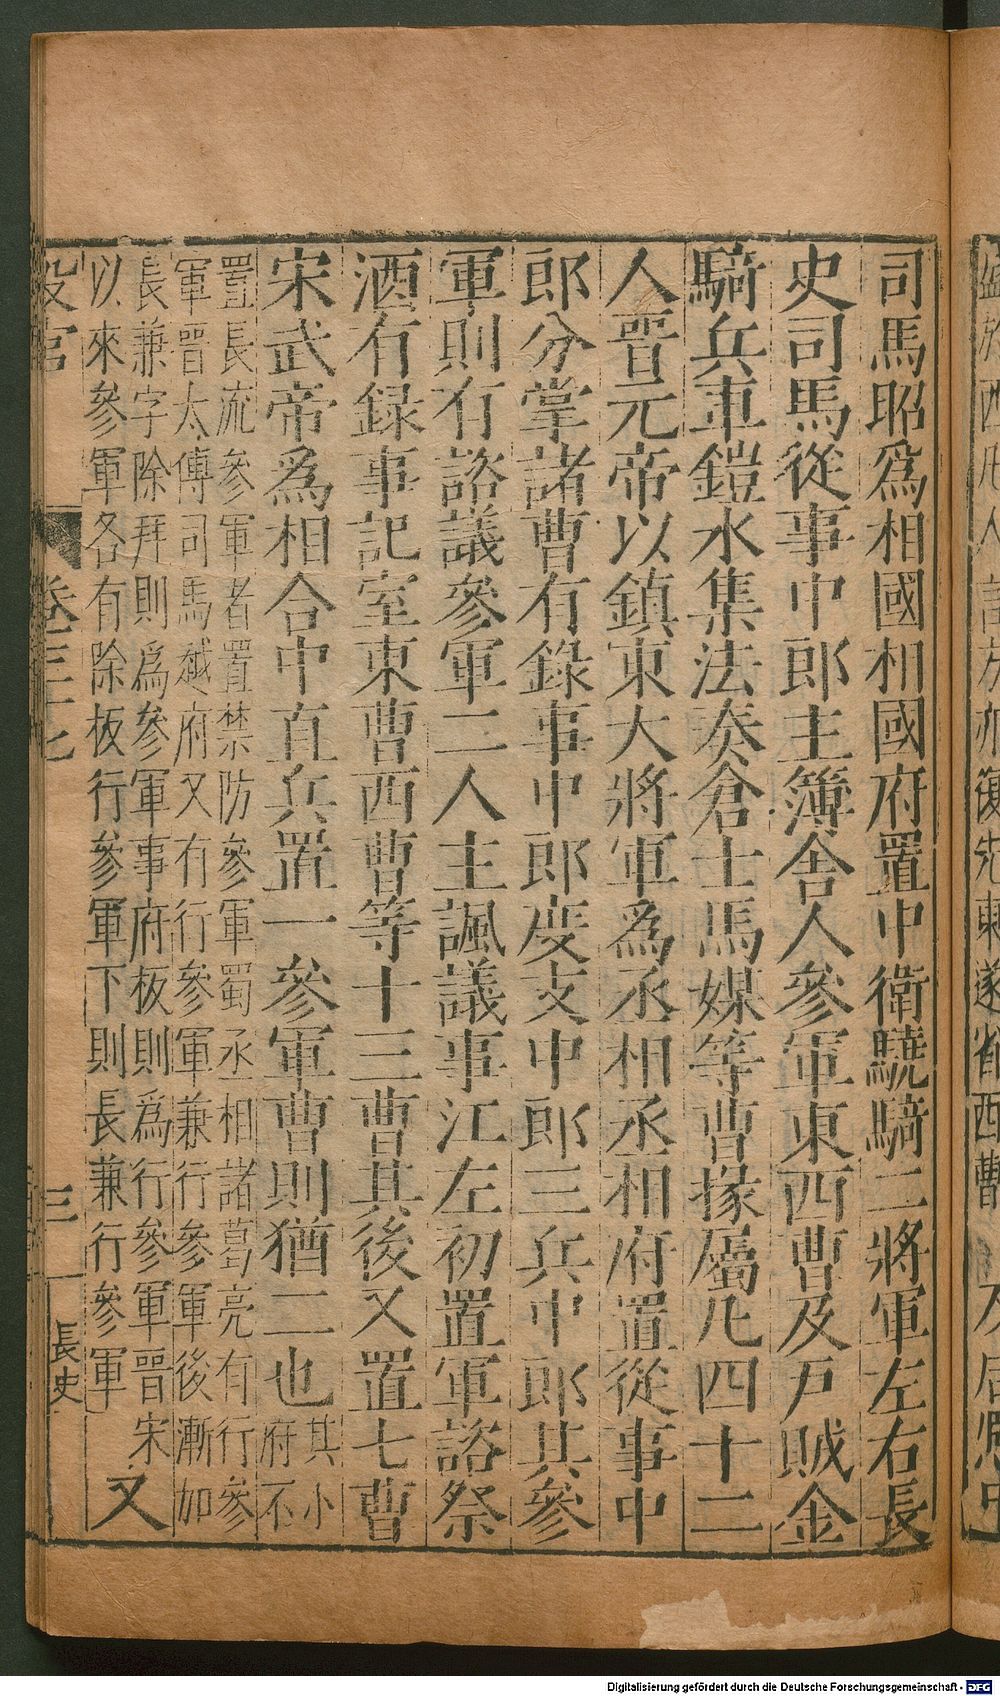 司馬昭爲相國相國府置中衛驍騎二將軍左右長
史司馬從事中郎主簿舍人參軍東西曹及戸賊金
騎兵車鎧水集法奏倉士馬媒等曹掾屬凡四十二
人晉元帝以鎮東大將軍爲丞相丞相府置從事中
郎分掌諸曹有錄事中郎度支中郎三兵中郎其參
軍則有諮議參軍二人主諷議事江左初置軍諮祭
酒有録事記室東曹西曹等十三曹其後又置七曹
宋武帝爲相合中直兵置一參軍曹則猶二也其小
府不
置長流參軍者置禁防參軍蜀丞相諸葛亮有行參
軍晉太傅司馬越府又有行參軍兼行參軍後漸加
長兼字除拜則爲參軍事府板則爲行參軍晉宋
以來參軍各有除板行參軍下則長兼行參軍
又
設官
卷三十七
三
長史
Digitalisierung gefördert durch die Deutsche Forschungsgemeinschaft - DFG